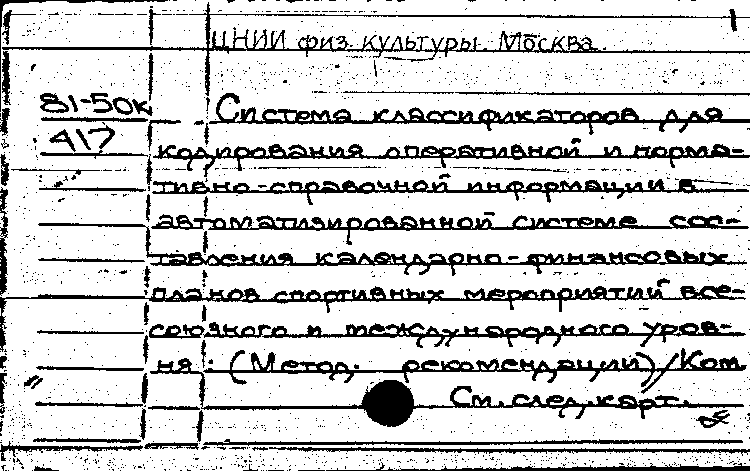 ЦНИИ физ. культуры. Москва.
81-50к
417
Система классификаторов для
кодирования оперативной и норма-
тивно-справочной информации в
автоматизированной системе сос-
тавления календарно-финансовых
планов спортивных мероприятий все-
союзного и международного уров-
ня: (Метод. рекомендации)/Ком
См. след. карт.